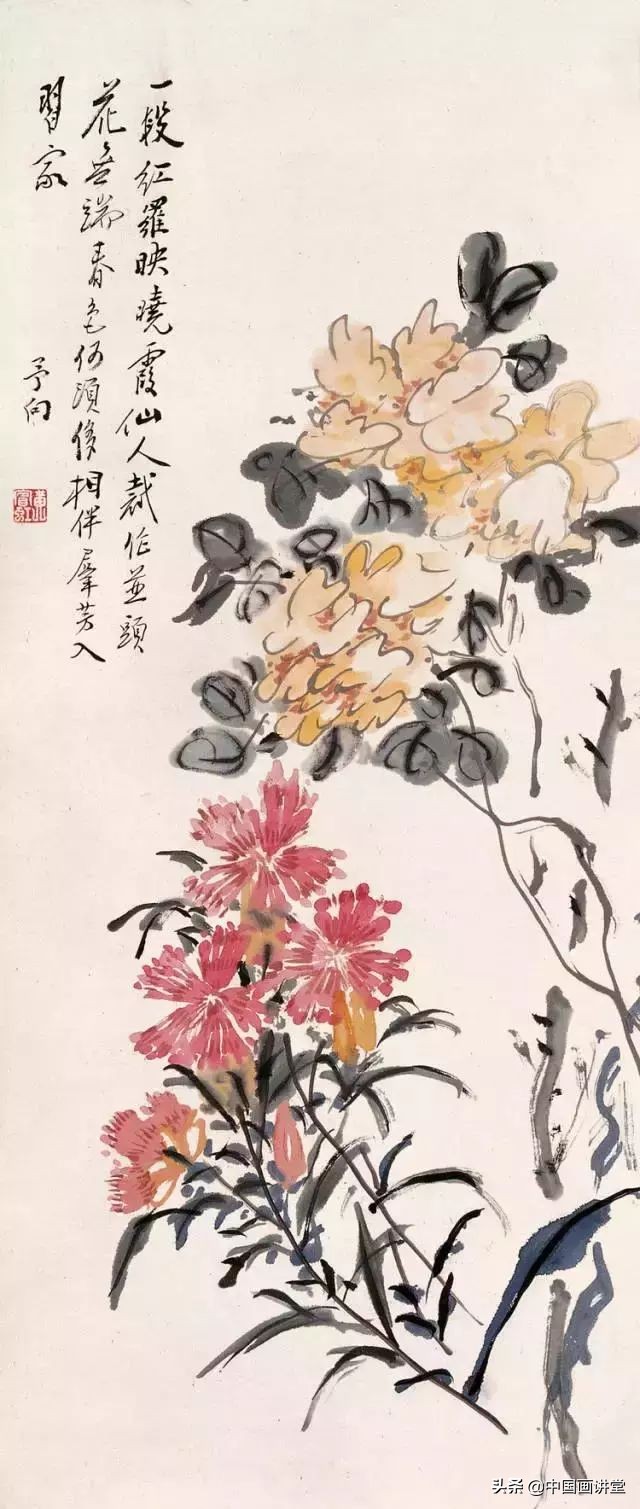 一段紅羅映曉霞仙人裁作並頭
花無端春色何須相伴羣芳入
習家
予向
黃賓虹
头条 @中国画讲堂